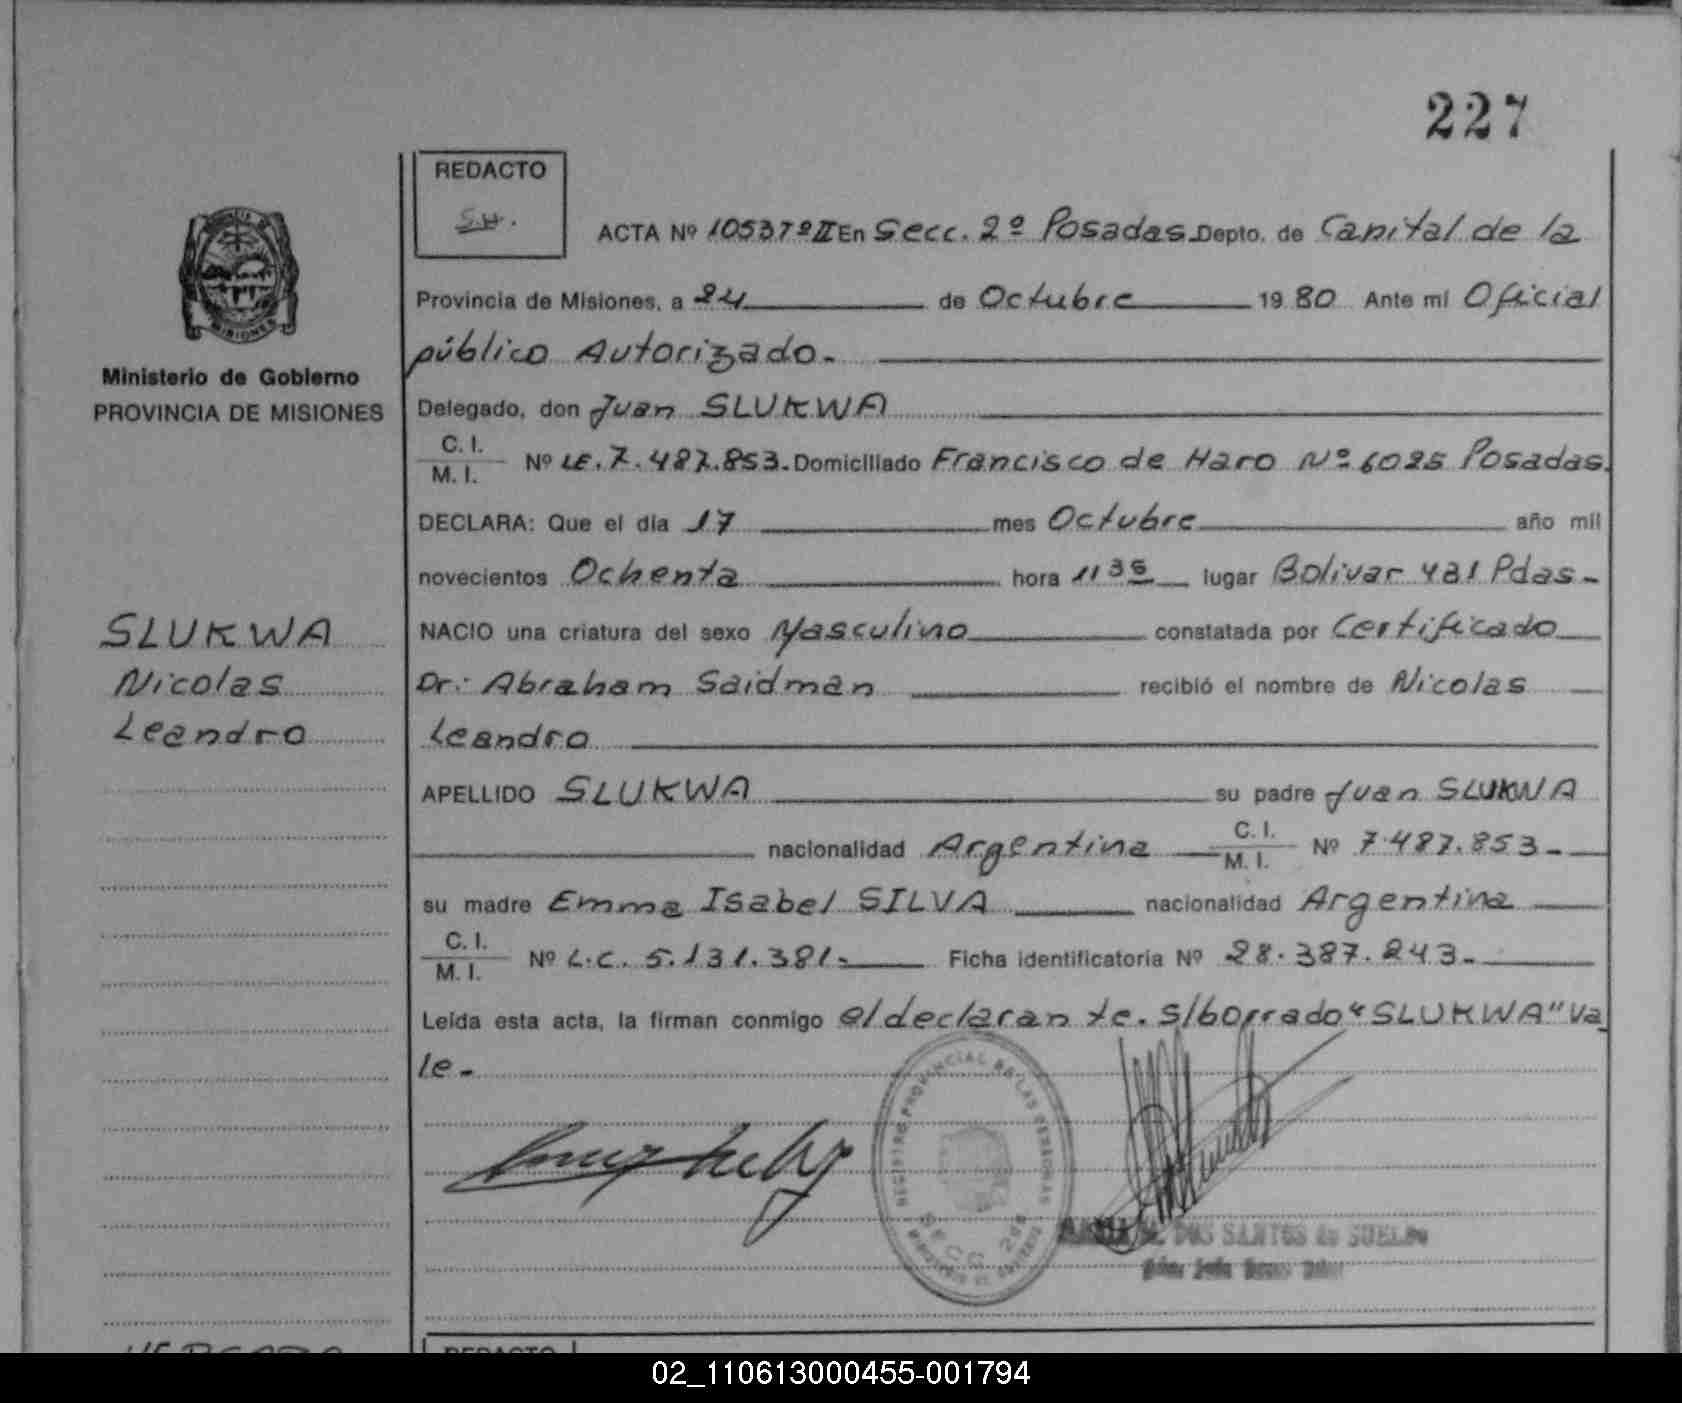 227
REDACTO
S.H.
ACTA Nº 1053Tº II En Secc. 2º Posadas Depto. de Capital de la
Provincia de Misiones, a 24 de Octubre 19 80 Ante mi Oficial
público Autorizado.
Ministerio de Gobierno
PROVINCIA DE MISIONES
Delegado, don Juan SLUKWA
C. I.
M. I.
Nº LE. 7.487.853. Domiciliado Francisco de Haro Nº 6025 Posadas.
DECLARA: Que el dia 17 mes Octubre año mil
novecientos Ochenta hora 11 35 lugar Bolivar 421 Pdas-
SLUKWA
Nicolas
Leandro
NACIO una criatura del sexo Masculino constatada por Certificado
Dr: Abraham Saidman recibió el nombre de Nicolas
Leandro
APELLIDO SLUKWA su padre Juan SLUKWA
nacionalidad Argentina C. I. M. I. Nº 7.487.853-
su madre Emma Isabel SILVA nacionalidad Argentina
C. I.
M. I.
Nº L.C. 5.131.381- Ficha identificatoria Nº 28.387.243-
Leída esta acta, la firman conmigo el declarante. S/borrado "SLUKWA" Va
le-
REGISTRO PROVINCIAL DE LAS PERSONAS
SECC 2da
DOS SANTOS de SUELDO
REDACTO
02_110613000455-001794